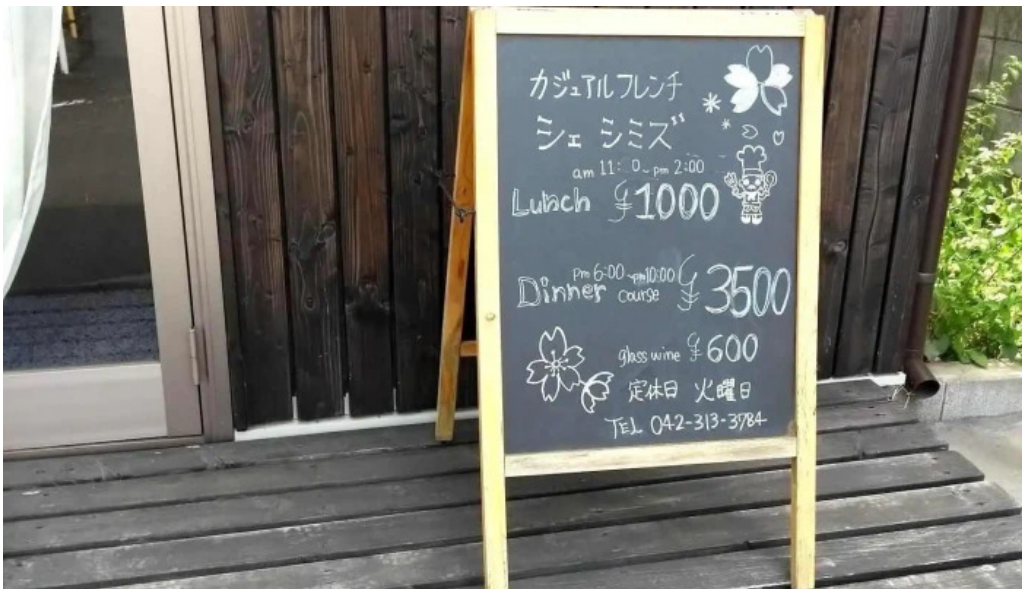 カジュアルフレンチ
シェ シミズ
am 11: 0~pm 2:00
Lunch ¥1000
pm 6:00~pm10:00
Dinner course ¥3500
glass wine ¥600
定休日 火曜日
TEL 042-313-3784